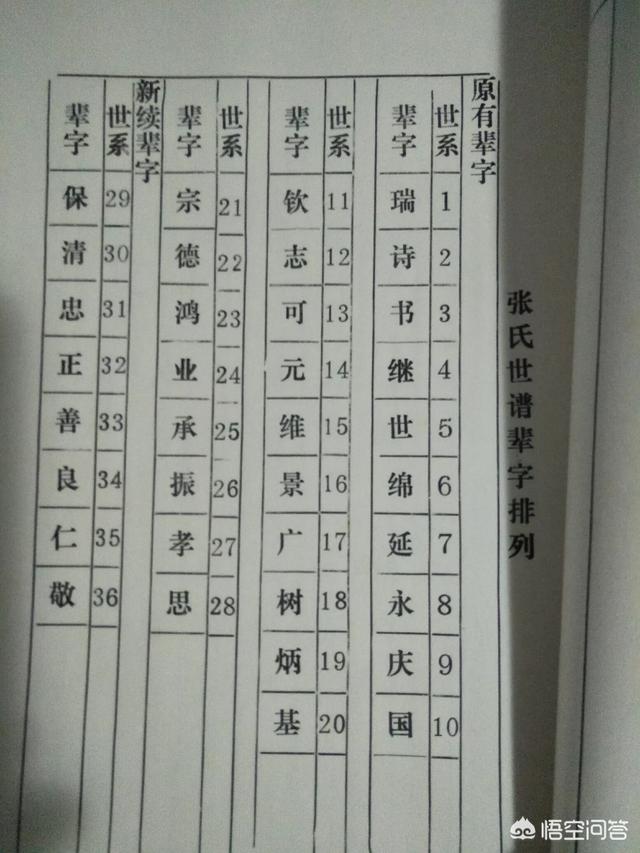 张氏世谱辈字排列
原有辈字
世系 辈字
1 瑞
2 诗
3 书
4 继
5 世
6 绵
7 延
8 永
9 庆
10 国
世系 辈字
11 钦
12 志
13 可
14 元
15 维
16 景
17 广
18 树
19 炳
20 基
世系 辈字
21 宗
22 德
23 鸿
24 业
25 承
26 振
27 孝
28 思
新续辈字
世系 辈字
29 保
30 清
31 忠
32 正
33 善
34 良
35 仁
36 敬
悟空问答